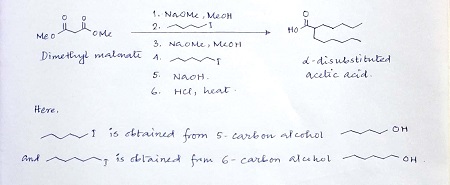 1. NaOMe, MeOH
O O 2. I O
MeO OMe 3. NaOMe, MeOH HO
Dimethyl malonate 4. I α-disubstituted
5. NaOH. acetic acid.
6. HCl, heat.
Here,
I is obtained from 5-carbon alcohol OH
and I is obtained from 6-carbon alcohol OH.